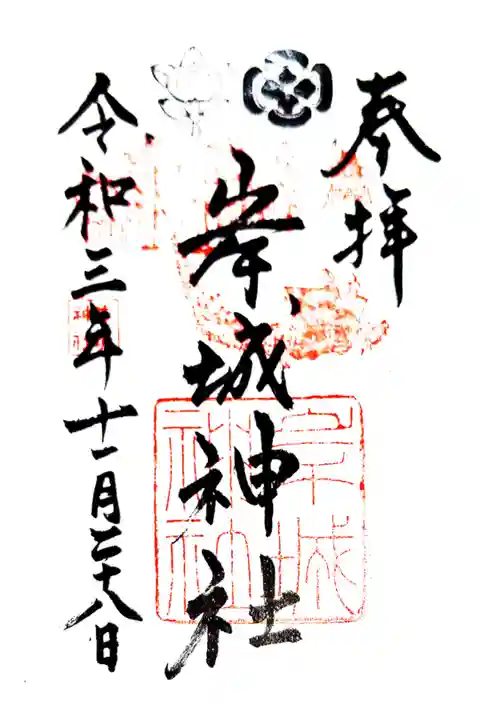 奉拝
岸城神社
令和三年十一月二十八日